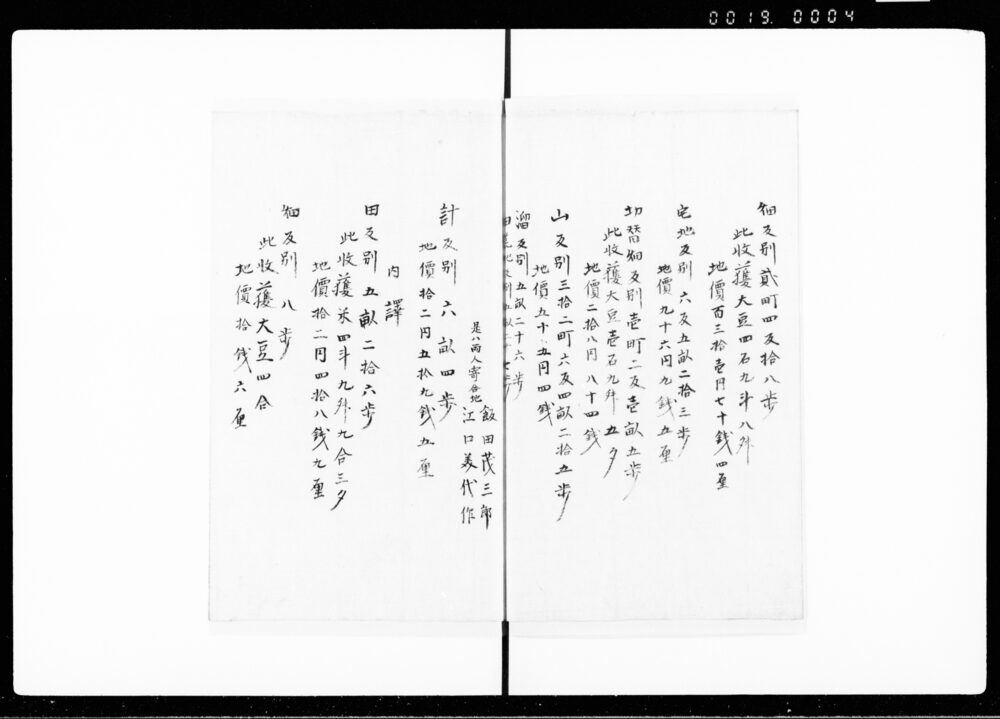 0019. 0004
畑反別貳町四反拾八歩
此收獲大豆四石九斗八舛
地價百三拾壱円七十銭四厘
宅地反別六反五畝二拾三歩
地價九十六円九銭五厘
切替畑反別壱町二反壱畝五歩
此收獲大豆壱石九舛五夕
地價二拾八円八十四銭
山反別三拾二町六反四畝二拾五歩
地價五十五円四銭
溜反別五畝二十六歩
是ハ両人寄合地
飯田茂三郎
江口美代作
計反別六畝四歩
地價拾二円五拾九銭五厘
内譯
田反別五畝二拾六歩
此收獲米四斗九舛九合三夕
地價拾二円四拾八銭九厘
畑反別八歩
此收獲大豆四合
地價拾銭六厘